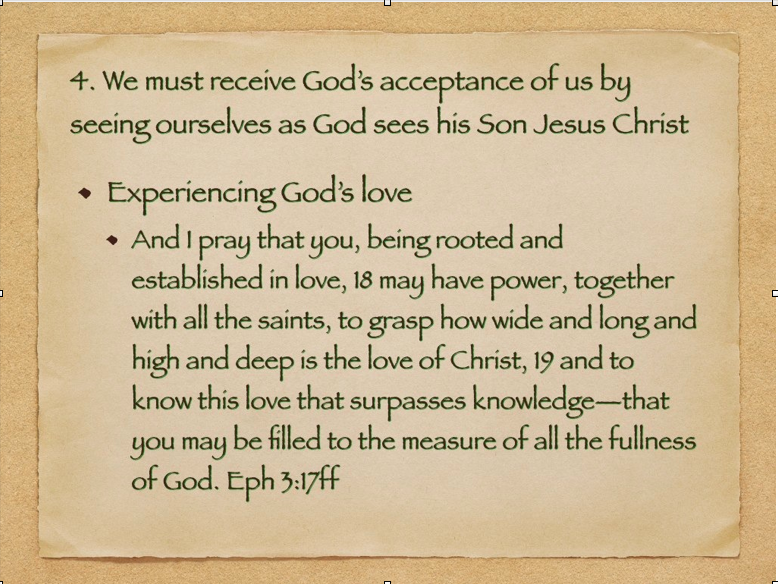 4. We must receive God's acceptance of us by
seeing ourselves as God sees his Son Jesus Christ
Experiencing God's love
And I pray that you, being rooted and
established in love, 18 may have power, together
with all the saints, to grasp how wide and long and
high and deep is the love of Christ, 19 and to
know this love that surpasses knowledge—that
you may be filled to the measure of all the fullness
of God. Eph 3:17ff